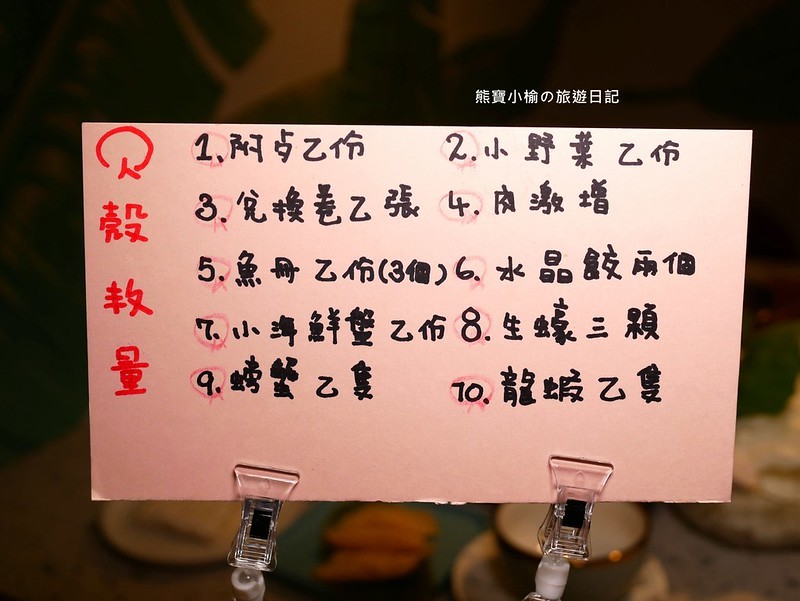 熊寶小榆の旅遊日記
殼
數
量
1.附占乙份 2.小野葉乙份
3.兌換卷乙張 4.肉激增
5.魚冊乙份(3個) 6.水晶餃兩個
7.小海鮮蟹乙份 8.生蠔三顆
9.螃蟹乙隻 10.龍蝦乙隻